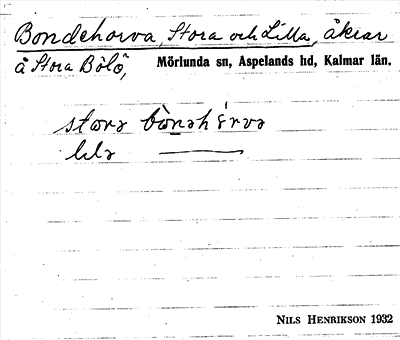 Bondehorva, Stora och Lilla, åkrar
å Stora Bölö, Mörlunda sn, Aspelands hd, Kalmar län.
stora
lila ———
NILS HENRIKSON 1932